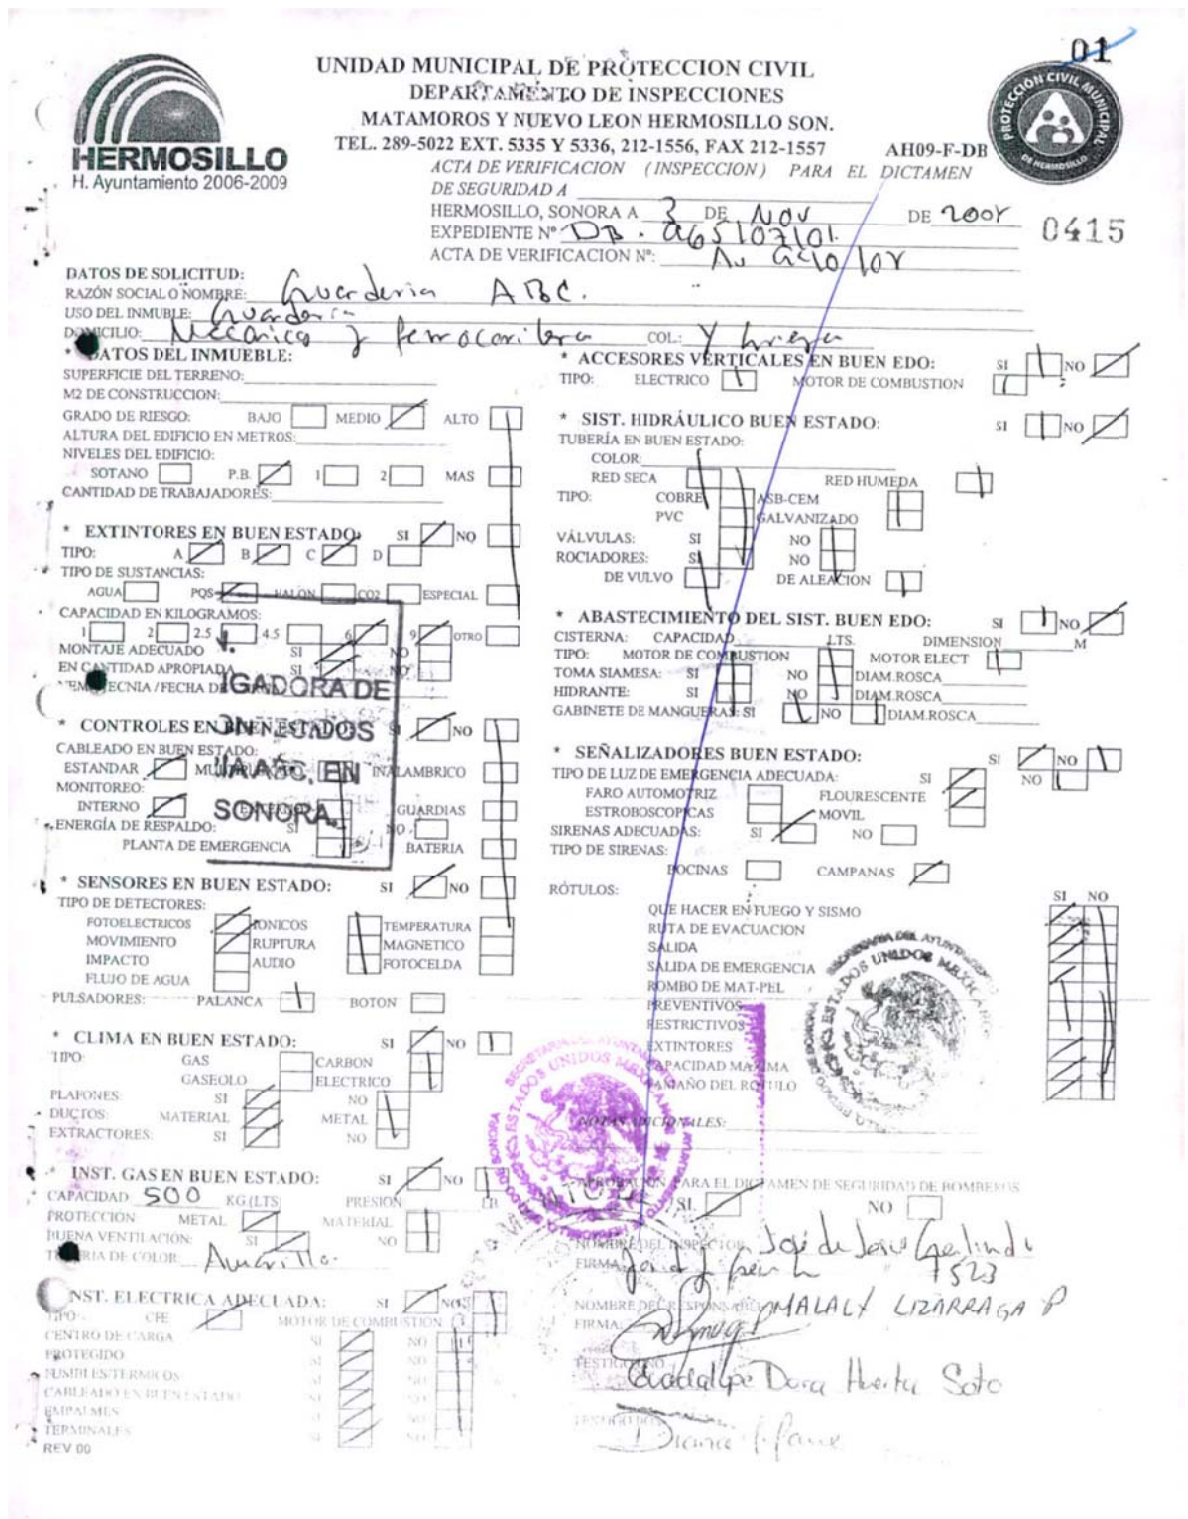 01
UNIDAD MUNICIPAL DE PROTECCION CIVIL
DEPARTAMENTO DE INSPECCIONES
MATAMOROS Y NUEVO LEON HERMOSILLO SON.
TEL. 289-5022 EXT. 5335 Y 5336, 212-1556, FAX 212-1557
AH09-F-DB
HERMOSILLO
H. Ayuntamiento 2006-2009
PROTECCIÓN CIVIL MUNICIPAL
DE HERMOSILLO
ACTA DE VERIFICACION (INSPECCION) PARA EL DICTAMEN
DE SEGURIDAD A
HERMOSILLO, SONORA A 3 DE Nov DE 2008
0415
EXPEDIENTE Nº DB.
ACTA DE VERIFICACION Nº:
DATOS DE SOLICITUD:
RAZÓN SOCIAL O NOMBRE: Guarderia ABC.
USO DEL INMUBLE: Guarderia
DOMICILIO: Mecánicos y ferrocarilera COL: Y Griega
* DATOS DEL INMUEBLE:
SUPERFICIE DEL TERRENO:
M2 DE CONSTRUCCION:
GRADO DE RIESGO: BAJO MEDIO ALTO
ALTURA DEL EDIFICIO EN METROS:
NIVELES DEL EDIFICIO:
SOTANO P.B. 1 2 MAS
CANTIDAD DE TRABAJADORES:
* EXTINTORES EN BUEN ESTADO: SI NO
TIPO: A B C D
TIPO DE SUSTANCIAS:
AGUA PQS HALON CO2 ESPECIAL
CAPACIDAD EN KILOGRAMOS:
1 2 2.5 4.5 6 9 OTRO
MONTAJE ADECUADO SI NO
EN CANTIDAD APROPIADA SI NO
IGADORA DE
SONORA.
* CONTROLES EN BUEN ESTADO SI NO
CABLEADO EN BUEN ESTADO:
ESTANDAR INALAMBRICO
MONITOREO:
INTERNO GUARDIAS
ENERGÍA DE RESPALDO: SI NO
PLANTA DE EMERGENCIA BATERIA
* SENSORES EN BUEN ESTADO: SI NO
TIPO DE DETECTORES:
FOTOELECTRICOS IONICOS TEMPERATURA
MOVIMIENTO RUPTURA MAGNETICO
IMPACTO AUDIO FOTOCELDA
FLUJO DE AGUA
PULSADORES: PALANCA BOTON
* CLIMA EN BUEN ESTADO: SI NO
TIPO: GAS CARBON
GASEOLO ELECTRICO
PLAFONES: SI NO
DUCTOS: MATERIAL METAL
EXTRACTORES: SI NO
* INST. GAS EN BUEN ESTADO: SI NO
CAPACIDAD 500 KG (LTS PRESION
PROTECCIÓN METAL MATERIAL
BUENA VENTILACIÓN: SI NO
TUBERIA DE COLOR Amarillo
INST. ELECTRICA ADECUADA: SI NO
TIPO: CFE MOTOR DE COMBUSTION
CENTRO DE CARGA SI NO
PROTEGIDO SI NO
FUSIBLES/TERMICOS SI NO
CABLEADO EN BUEN ESTADO SI NO
EMPALMES SI NO
TERMINALES SI NO
REV 00
* ACCESORES VERTICALES EN BUEN EDO: SI NO
TIPO: ELECTRICO MOTOR DE COMBUSTION
* SIST. HIDRÁULICO BUEN ESTADO: SI NO
TUBERÍA EN BUEN ESTADO:
COLOR:
RED SECA RED HUMEDA
TIPO: COBRE ASB-CEM
PVC GALVANIZADO
VÁLVULAS: SI NO
ROCIADORES: SI NO
DE VULVO DE ALEACION
* ABASTECIMIENTO DEL SIST. BUEN EDO: SI NO
CISTERNA: CAPACIDAD LTS. DIMENSION M
TIPO: MOTOR DE COMBUSTION MOTOR ELECT
TOMA SIAMESA: SI NO DIAM.ROSCA
HIDRANTE: SI NO DIAM.ROSCA
GABINETE DE MANGUERAS: SI NO DIAM.ROSCA
* SEÑALIZADORES BUEN ESTADO: SI NO
TIPO DE LUZ DE EMERGENCIA ADECUADA: SI NO
FARO AUTOMOTRIZ FLOURESCENTE
ESTROBOSCOPICAS MOVIL
SIRENAS ADECUADAS: SI NO
TIPO DE SIRENAS:
BOCINAS CAMPANAS
RÓTULOS: SI NO
QUE HACER EN FUEGO Y SISMO
RUTA DE EVACUACION
SALIDA
SALIDA DE EMERGENCIA
ROMBO DE MAT-PEL
PREVENTIVOS
RESTRICTIVOS
EXTINTORES
CAPACIDAD MAXIMA
TAMAÑO DEL ROTULO
NOTAS ADICIONALES:
APROBACION PARA EL DICTAMEN DE SEGURIDAD DE BOMBEROS
SI NO
NOMBRE DEL INSPECTOR José de Jesús Galindo
FIRMA 7523
NOMBRE DEL RESPONSABLE AMALALY LIZARRAGA P
FIRMA:
TESTIGO UNO
Guadalupe Dora Huerta Soto
TESTIGO DOS
Diana